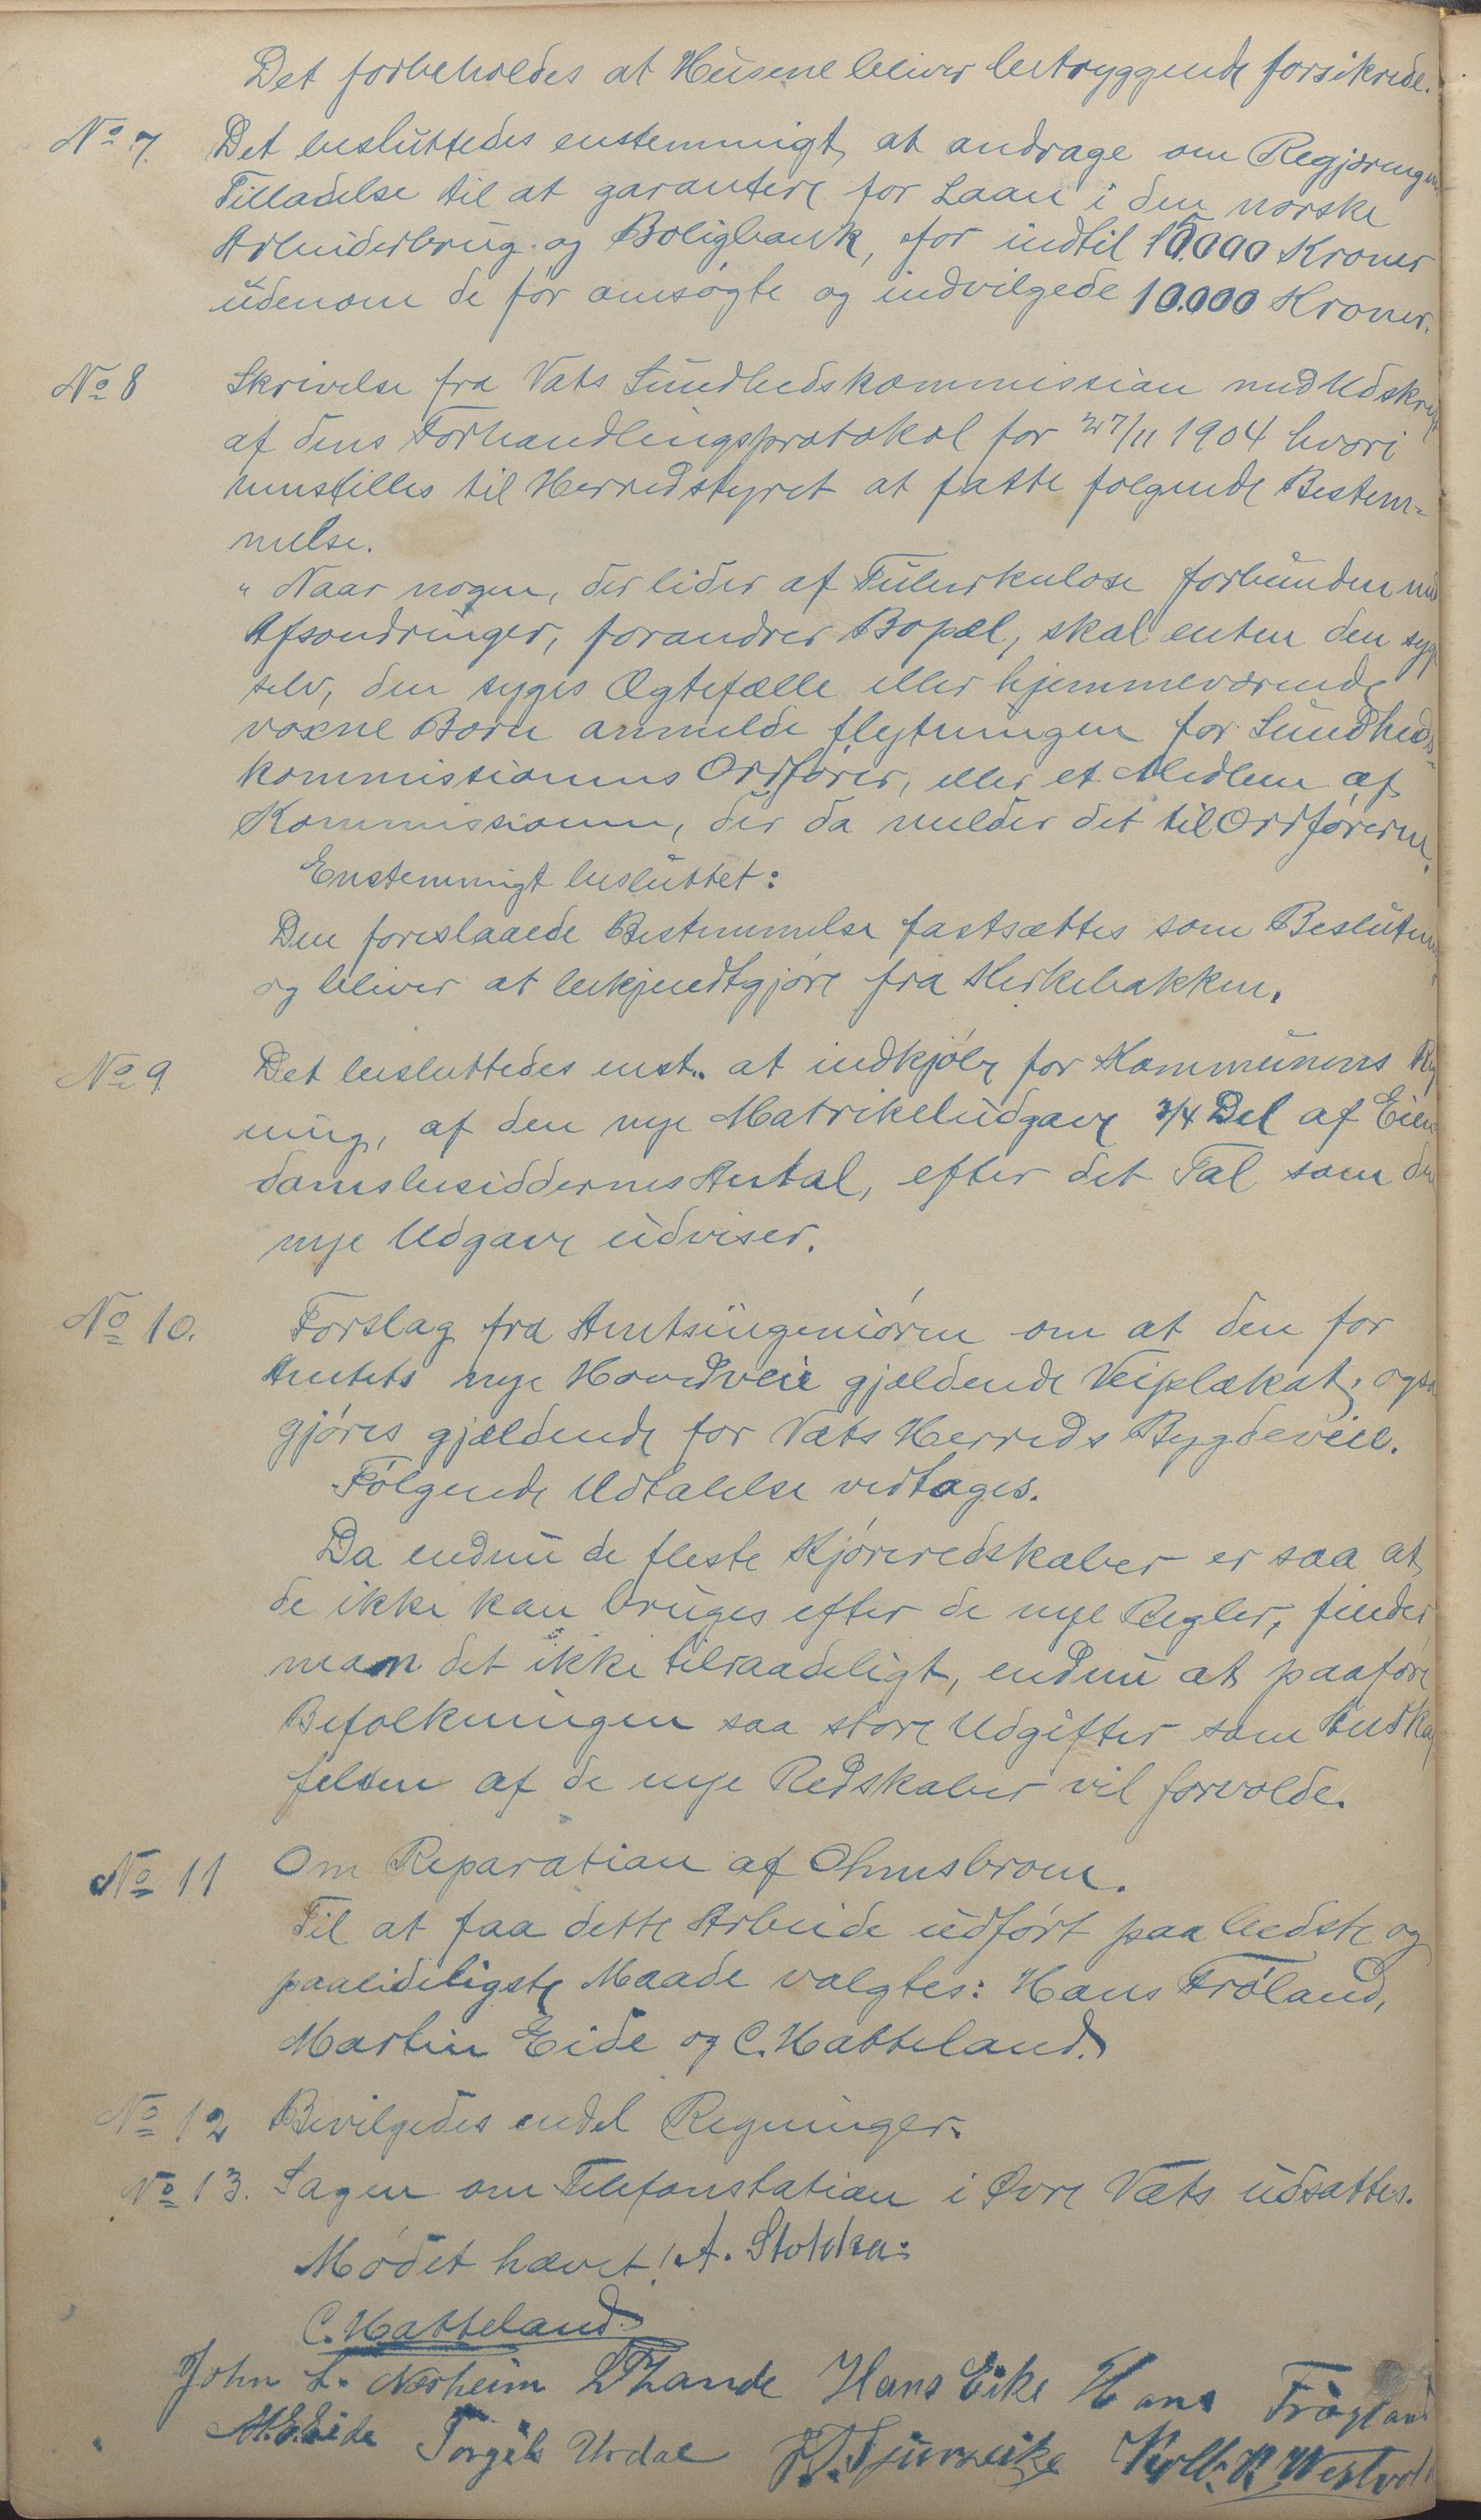 Det forbeholdes at Husene bliver betryggende forsikrede.
No 7. Det besluttedes enstemmigt, at andrage om Regjæringens
Tilladelse til at garantere for Laan i den norske
Arbeiderbrug og Boligbank, for indtil 15000 Kroner
udenom de før ansøgte og indvilgede 10.000 Kroner.
No 8 Skrivelse fra Vats Sundhedskommission med Udskrift
af dens Forhandlingsprotokol for 27/11 1904 hvori
henstilles til Herredstyret at fatte følgende Bestem=
melse.
" Naar nogen, der lider af Tuberkulose forbunden med
Afsondringer, forandrer Bopæl, skal enten den syge
selv, den syges Ægtefælle eller hjemmeværende
voxne Børn anmelde flytningen for Sundheds=
kommissionens Ordfører, eller et Medlem af
Kommissionen, der da melder det til Ordføreren.
Enstemmigt besluttet:
Den foreslaaede Bestemmelse fastsættes som Beslutning
og bliver at bekjendtgjøre fra Kirkebakken.
No 9 Det besluttedes enst. at indkjøbe for Kommunens Reg
ning, af den nye Matrikeludgave 3/4 Del af Eien
domsbesiddernes Antal, efter det Tal som den
nye Udgave udviser.
No 10. Forslag fra Amtsingeniøren om at den for
Amtets nye Hovedveie gjældende Veiplakat, ogsaa
gjøres gjældende for Vats Herreds Bygdeveie.
Følgende Udtalelse vedtages.
Da endnu de fleste Kjøreredskaber er saa at
de ikke kan bruges efter de nye Regler, finder
man det ikke tilraadeligt, endnu at paaføre
Befolkningen saa store Udgifter som Indkaf
felsen af de nye Redskaber vil forvolde.
No 11 Om Reparation af Ohmsbroen.
Til at faa dette Arbeide udført paa bedste og
paalideligste Maade valgtes: Hans Frøland,
Martin Eide og C. Hatteland.
No 12 Bevilgedes endel Regninger.
No 13. Sagen om Telefonstation i Øvre Vats udsattes.
Mødet hævet! A. Stolska.
C. Hatteland.
John L. Nesheim Lande Hans Eike Hans Frøyland
M. E. Eide Torgils Urdal Tjurseike Westvold